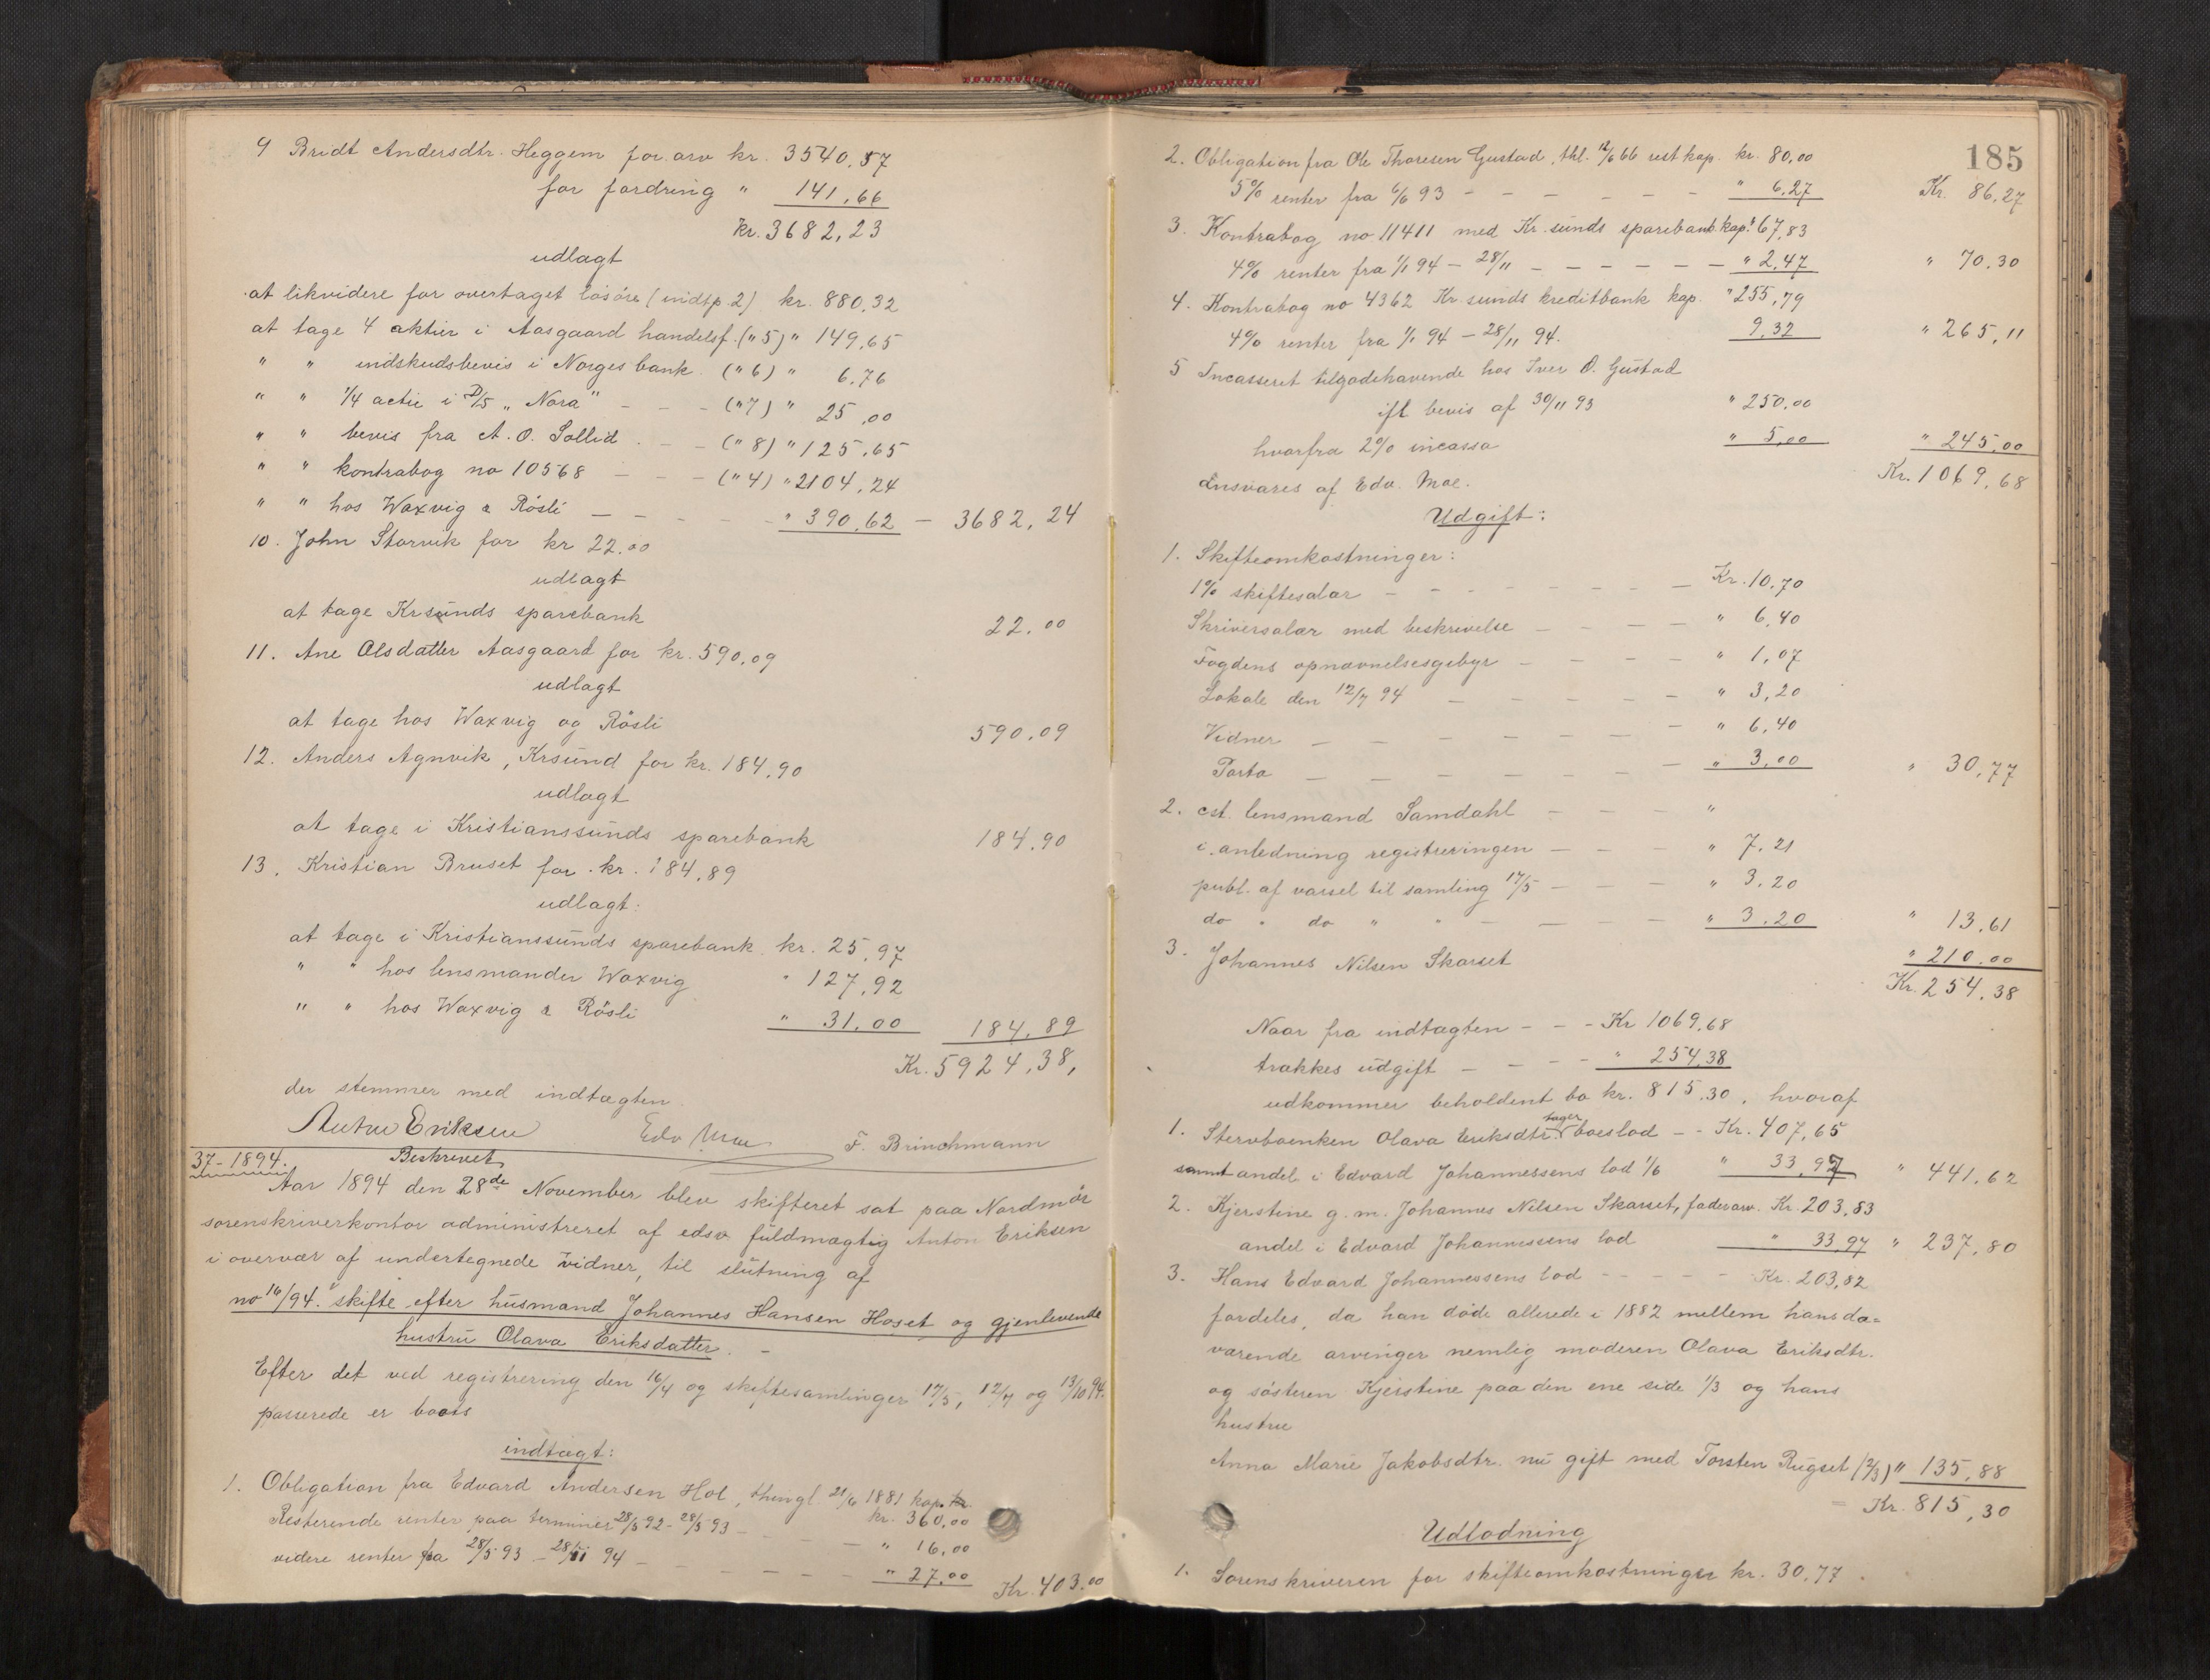 9 Bridt Andersdtr. Heggem for arv kr. 3540,57
for fordring " 141,66
kr. 3682,23
udlagt
at likvidere for overtaget løsøre (indtp. 2) kr. 880,32
at tage 4 aktier i Aasgaard handelsf. (" 5) " 149,65
" " indskudsbevis i Norges bank (" 6) " 6,76
" " 1/4 actie i D/S „Nora" - - - ("7) " 25,00
" " bevis fra A. O. Sollid - - (" 8) " 125,65
" " kontrabog no 10568 - - - ("4) " 2104,24
" " hos Waxvig & Rösli - - - - " 390,62 - 3682,24
10. John Storvik for kr 22.00
udlagt
at tage Krsunds sparebank 22.00
11. Ane Olsdatter Aasgaard for kr. 590,09
udlagt
at tage hos Waxvig og Rösli 590.09
12. Anders Agnvik, Krsund for kr. 184,90
udlagt
at tage i Kristianssunds sparebank 184,90
13. Kristian Bruset for kr. 184,89
udlagt:
at tage i Kristianssunds sparebank kr. 25,97
" " hos lensmanden Waxvig " 127,92
" " hos Waxvig & Rösli " 31,00 184,89
Kr. 5924,38,
der stemmer med indtægten
Anton Eriksen Edv Moe F. Brinchmann
37-1894. Beskrevet
Aar 1894 den 28de November blev skifteret sat paa Nordmør
sorenskriverkontor administreret af edsv. fuldmægtig Anton Eriksen
i overvær af undertegnede vidner, til slutning af
no 16/94. skifte efter husmand Johannes Hansen Hoset og gjenlevende
hustru Olava Eriksdatter. -
Efter det ved registrering den 16/4 og skiftesamlinger 17/5, 12/7 og 13/10 94.
passerede er boets
indtægt:
1. Obligation fra Edvard Andersen Hol, thingl. 21/6 1881 kap. kr.
kr. 360,00
Resterende renter paa terminer 28/5 92 - 28/5 93 - - - " 16,00
videre renter fra 28/5 93 - 28/11 94 - - - - - " 27.00 Kr. 403.00
185
2. Obligation fra Ole Thoresen Gustad thl. 12/6 66 rest kap. kr. 80,00
5% renter fra 6/6 93 - - - - - - " 6,27 Kr. 86,27
3. Kontrabog no 11411 med Kr.sunds sparebank kap. " 67,83
4% renter fra 1/1 94 - 28/11 - - - - - - " 2,47 " 70.30
4. Kontrabog no 4362 Kr.sunds kreditbank kap. " 255,79
4% renter fra 1/1 94 - 28/11 94. 9,32 " 265,11
5 Incasseret tilgodehavende hos Iver O. Gustad
ifl. bevis af 30/11 93 " 250.00
hvorfra 2% incasso " 5,00 " 245,00
ansvares af Edv. Moe. Kr. 1069,68
Udgift:
1. Skifteomkostninger:
1% skiftesalær - - - - - - - Kr. 10,70
Skriversalær med beskrivelse - - - - " 6,40
Fogdens opnævnelsesgebyr - - - - " 1,07
Lokale den 12/7 94 - - - - - " 3,20
Vidner - - - - - - - " 6,40
Porto - - - - - - - " 3,00 " 30,77
2. cst. lensmand Samdahl - - - "
i anledning registreringen - - - " 7,21
publ. af varsel til samling 17/5 - - - " 3.20
do " do " " - - - - " 3.20 " 13,61
3. Johannes Nilsen Skarset " 210.00
Kr. 254,38
Naar fra indtægten - - - Kr 1069,68
trækkes udgift - - - - " 254,38
udkommer beholdent bo kr. 815,30, hvoraf
1. Stervboenken Olava Eriksdtr. tager boeslod - - Kr. 407,65
samt andel i Edvard Johannessens lod 1/6 " 33,97 " 441,62
2. Kjerstine g. m. Johannes Nilsen Skarset, faderarv. Kr. 203,83
andel i Edvard Johannessens lod " 33,97 " 237,80
3. Hans Edvard Johannessens lod - - - - - Kr. 203,82
fordeles, da han døde allerede i 1882 mellem hans da=
værende arvinger nemlig moderen Olava Eriksdtr.
og søsteren Kjerstine paa den ene side 1/3 og hans
hustru
Anna Marie Jakobsdtr. nu gift med Torsten Rugset (2/3) " 135,88
Kr. 815,30
Udlodning
1. Sorenskriveren for skifteomkostninger kr. 30,77.